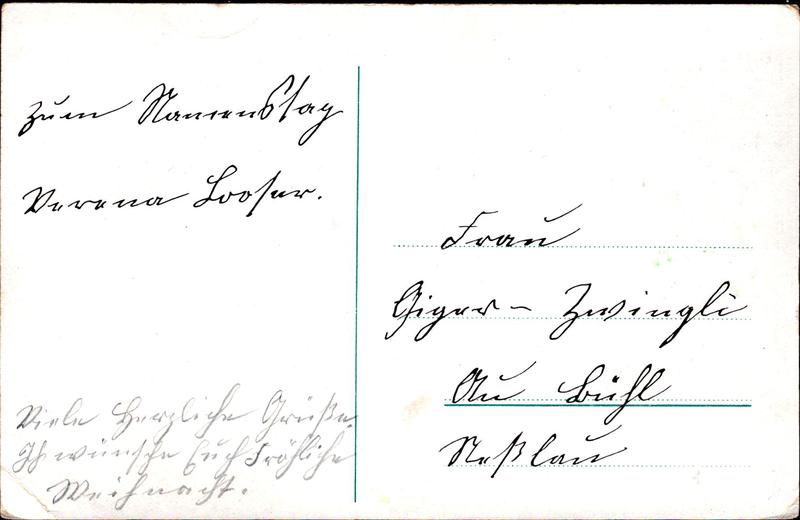 Zum Namenstag
Verena Looser.
Viele Herzliche Grüße.
Ich wünsche Euch Fröhliche
Weihnacht.
Frau
Giger - Zwingli
Au Bühl
Neßlau